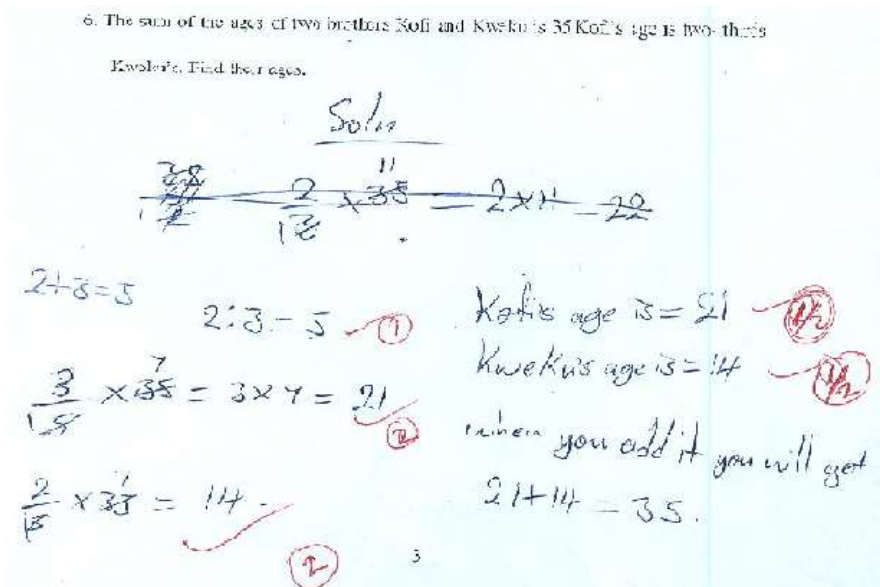 6. The sum of the ages of two brothers Kofi and Kweku is 35 Kofi's age is two- thirds
Kweku's. Find their ages.
Soln
2/13 × 35 11 = 2×11 = 22
2+3=5
2:3 = 5 1
3/15 × 35 7 = 3×7 = 21
2
2/15 × 35 7 = 14
2
Kofi's age is = 21 1/2
Kweku's age is = 14 1/2
when you add it you will get
21+14 = 35.
3